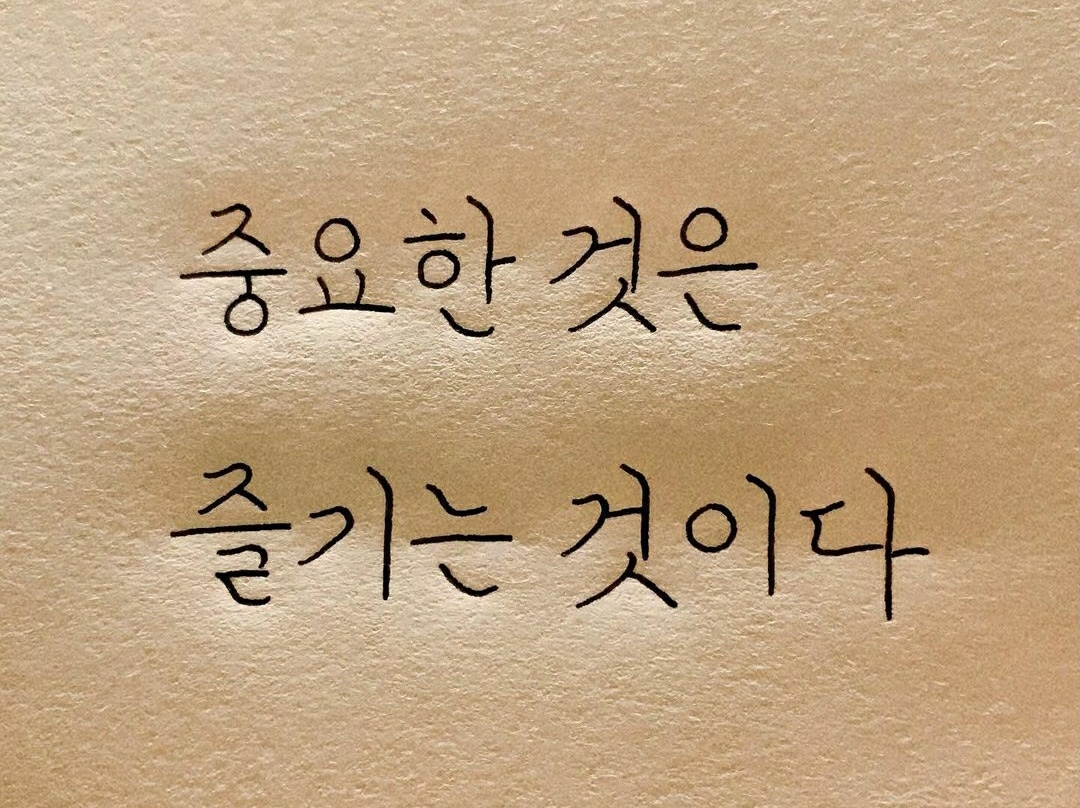 중요한 것은
즐기는 것이다